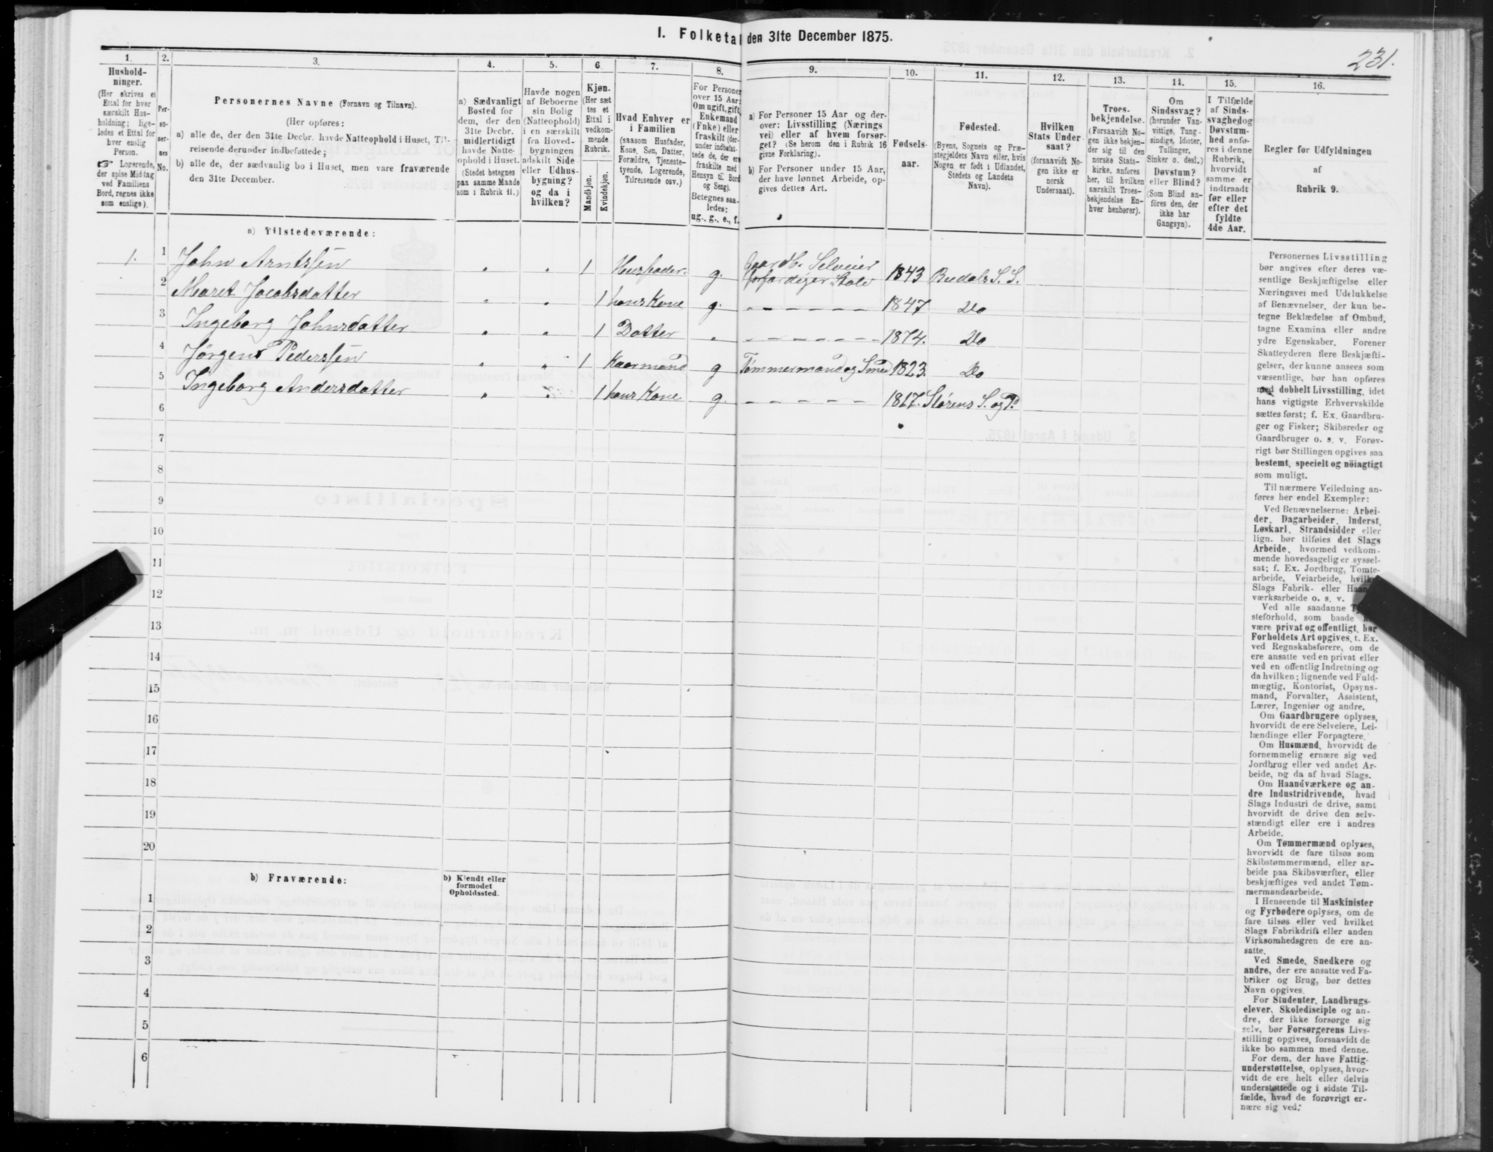 I. Folketal den 31te December 1875.
231.
1.
Hushold-
ninger.
(Her skrives et
Ettal for hver
særskilt Hus-
holdning; lige-
ledes et Ettal for
hver enslig
Person.
☞ Logerende,
der spise Middag
ved Familiens
Bord, regnes ikke
som enslige).
2.
Per-
so-
ner-
nes
No.
3.
Personernes Navne (Fornavn og Tilnavn).
(Her opføres:
a) alle de, der den 31te Decbr. havde Natteophold i Huset, Til-
reisende derunder indbefattede;
b) alle de, der sædvanlig bo i Huset, men vare fraværende
den 31te December.
4.
a) Sædvanligt
Bosted for
dem, der den
31te Decbr.
midlertidigt
havde Natte-
ophold i Huset.
(Stedet betegnes
paa samme Maade
som i Rubrik 11.)
5.
Havde nogen
af Beboerne
sin Bolig
(Natteophold)
i en særskilt
fra Hoved-
bygningen
adskilt Side
eller Udhus-
bygning?
og da i
hvilken?
6.
Kjøn.
(Her sæt-
tes et
Ettal i
vedkom-
mende
Rubrik.
Mandkjøn.
Kvindekjøn.
7.
Hvad Enhver er
i Familien
(saasom Husfader,
Kone, Søn, Datter,
Forældre, Tjeneste-
tyende, Logerende,
Tilreisende osv.)
8.
For Personer
over 15 Aar:
Om ugift, gift,
Enkemand
(Enke) eller
fraskilt (der-
under indbefat-
tede de, der ere
fraskilte med
Hensyn til Bord
og Seng).
Betegnes saa-
ledes:
ug., g., e., f.
9.
a) For Personer 15 Aar og der-
over: Livsstilling (Nærings-
vei) eller af hvem forsør-
get? (Se herom den i Rubrik 16
givne Forklaring).
b) For Personer under 15 Aar,
der have lønnet Arbeide, op-
gives dettes Art.
10.
Fødsels-
aar.
11.
Fødested.
(Byens, Sognets og Præ-
stegjeldets Navn eller, hvis
Nogen er født i Udlandet,
Stedets og Landets
Navn).
12.
Hvilken
Stats Under-
saat?
(forsaavidt No-
gen ikke er
norsk
Undersaat).
13.
Troes-
bekjendelse.
(Forsaavidt No-
gen ikke bekjen-
der sig til den
norske Stats-
kirke, anføres
her, til hvilken
særskilt Troes-
bekjendelse En-
hver henhører).
14.
Om
Sindssvag?
(herunder Van-
vittige, Tung-
sindige, Idioter,
Tullinger,
Sinker o. desl.)
Døvstum?
eller Blind?
(Som Blind an-
føres den, der
ikke har
Gangsyn).
15.
I Tilfælde
af Sinds-
svaghed og
Døvstum-
hed anfø-
res i denne
Rubrik,
hvorvidt
samme er
indtraadt
før eller
efter det
fyldte
4de Aar.
16.
Regler for Udfyldningen
af
Rubrik 9.
a) Tilstedeværende:
1. 1 John Arntssen 1 Husfader. g. Gaardb. Selveier forfærdiger Stole 1843 Budals S. S.
2 Maret Jacobsdatter 1 hans Kone g. 1847. Do
3 Ingeborg Johnsdatter 1 Datter 1874. Do
4 Jørgen Pederssen 1 Kaarmand g Tømmermand og Smed 1823. Do
5 Ingeborg Andersdatter 1 hans Kone g. 1817. Størens S. og P.
6
7
8
9
10
11
12
13
14
15
16
17
18
19
20
b) Fraværende:
b) Kjendt eller
formodet
Opholdssted.
1
2
3
4
5
6
Personernes Livsstilling
bør angives efter deres væ-
sentlige Beskjæftigelse eller
Næringsvei med Udelukkelse
af Benævnelser, der kun be-
tegne Beklædelse af Ombud,
tagne Examina eller andre
ydre Egenskaber. Forener
Skatteyderen flere Beskjæfti-
gelser, der kunne ansees som
væsentlige, bør han opføres
med dobbelt Livsstilling, idet
hans vigtigste Erhvervskilde
sættes først; f. Ex. Gaardbru-
ger og Fisker; Skibsreder og
Gaardbruger o. s. v. Forøv-
rigt bør Stillingen opgives saa
bestemt, specielt og nöiagtigt
som muligt.
Til nærmere Veiledning an-
føres her endel Exempler:
Ved Benævnelserne: Arbei-
der, Dagarbeider, Inderst,
Løskarl, Strandsidder eller
lign. bør tilføies det Slags
Arbeide, hvormed vedkom-
mende hovedsagelig er syssel-
sat; f. Ex. Jordbrug, Tomte-
arbeide, Veiarbeide, hvilket
Slags Fabrik- eller Haand-
værksarbeide o. s. v.
Ved alle saadanne
steforhold, som baade
være privat og offentligt, bør
Forholdets Art opgives, t. Ex.
ved Regnskabsførere, om de
ere ansatte ved en privat eller
ved en offentlig Indretning og
da hvilken; lignende ved Fuld-
mægtig, Kontorist, Opsyns-
mand, Forvalter, Assistent,
Lærer, Ingeniør og andre.
Om Gaardbrugere oplyses,
hvorvidt de ere Selveiere, Lei-
lændinge eller Forpagtere.
Om Husmænd, hvorvidt de
fornemmelig ernære sig ved
Jordbrug eller ved andet Ar-
beide, og da af hvad Slags.
Om Haandværkere og an-
dre Industridrivende, hvad
Slags Industri de drive, samt
hvorvidt de drive den selv-
stændigt eller ere i andres
Arbeide.
Om Tømmermænd oplyses,
hvorvidt de fare tilsøs som
Skibstømmermænd, eller ar-
beide paa Skibsværfter, eller
beskjæftiges ved andet Tøm-
mermandsarbeide.
I Henseende til Maskinister
og Fyrbødere oplyses, om de
fare tilsøs eller ved hvilket
Slags Fabrikdrift eller anden
Virksomhedsgren de ere an-
satte.
Ved Smede, Snedkere og
andre, der ere ansatte ved Fa-
briker og Brug, bør dettes
Navn opgives.
For Studenter, Landbrugs-
elever, Skoledisciple og an-
dre, der ikke forsørge sig
selv, bør Forsørgerens Livs-
stilling opgives, forsaavidt de
ikke bo sammen med denne.
For dem, der have Fattig-
understøttelse, oplyses, hvor-
vidt de ere helt eller delvis
understøttede og i sidste Til-
fælde, hvad de forøvrigt er-
nære sig ved.